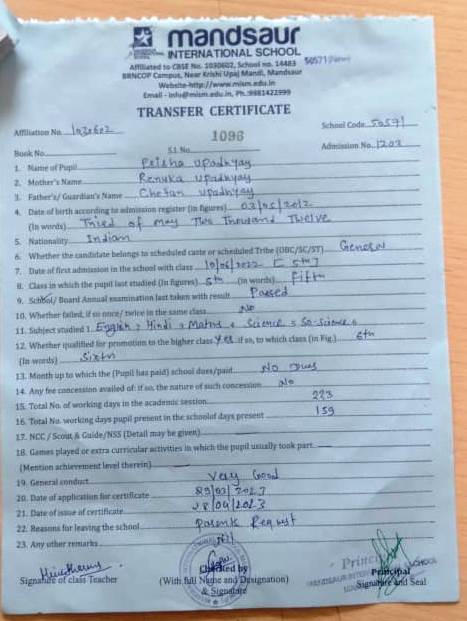 mandsaur
INTERNATIONAL SCHOOL
Affiliated to CBSE No. 1030602, School no. 14483 50571 (New)
BRNCOP Campus, Near Krishi Upaj Mandi, Mandsaur
Website-http://www.mism.edu.in
Email - info@mism.edu.in, Ph.:9981422999
TRANSFER CERTIFICATE
Affiliation No. 1030602 School Code 50571
1096
Book No. S1 No. Admission No. 1202
1. Name of Pupil Prisha Upadhyay
2. Mother's Name Renuka Upadhyay
3. Father's/ Guardian's Name Chetan Upadhyay
4. Date of birth according to admission register (in figures) 03/05/2012
(In words) Third of may Two Thousand Twelve
5. Nationality Indian
6. Whether the candidate belongs to scheduled caste or scheduled Tribe (OBC/SC/ST) General
7. Date of first admission in the school with class 10/06/2022 [ 5th ]
8. Class in which the pupil last studied (In figures) 5th (in words) Fifth
9. School/ Board Annual examination last taken with result Passed
10. Whether failed, if so once/ twice in the same class No
11. Subject studied 1. English, Hindi, Maths, Science, So-science
12. Whether qualified for promotion to the higher class Yes if so, to which class (in Fig.) 6th
(In words) Sixth
13. Month up to which the (Pupil has paid) school dues/paid No Dues
14. Any fee concession availed of: if so, the nature of such concession No
15. Total No. of working days in the academic session 223
16. Total No. working days pupil present in the school of days present 159
17. NCC / Scout & Guide/NSS (Detail may be given)
18. Games played or extra curricular activities in which the pupil usually took part
(Mention achievement level therein)
19. General conduct Very Good
20. Date of application for certificate /03/2023
21. Date of issue of certificate 28/04/2023
22. Reasons for leaving the school Parents Request
23. Any other remarks Nil
Signature of class Teacher
Checked by
(With full Name and Designation)
& Signature
Principal
MANDSAUR INTERNATIONAL SCHOOL
Principal
Signature and Seal